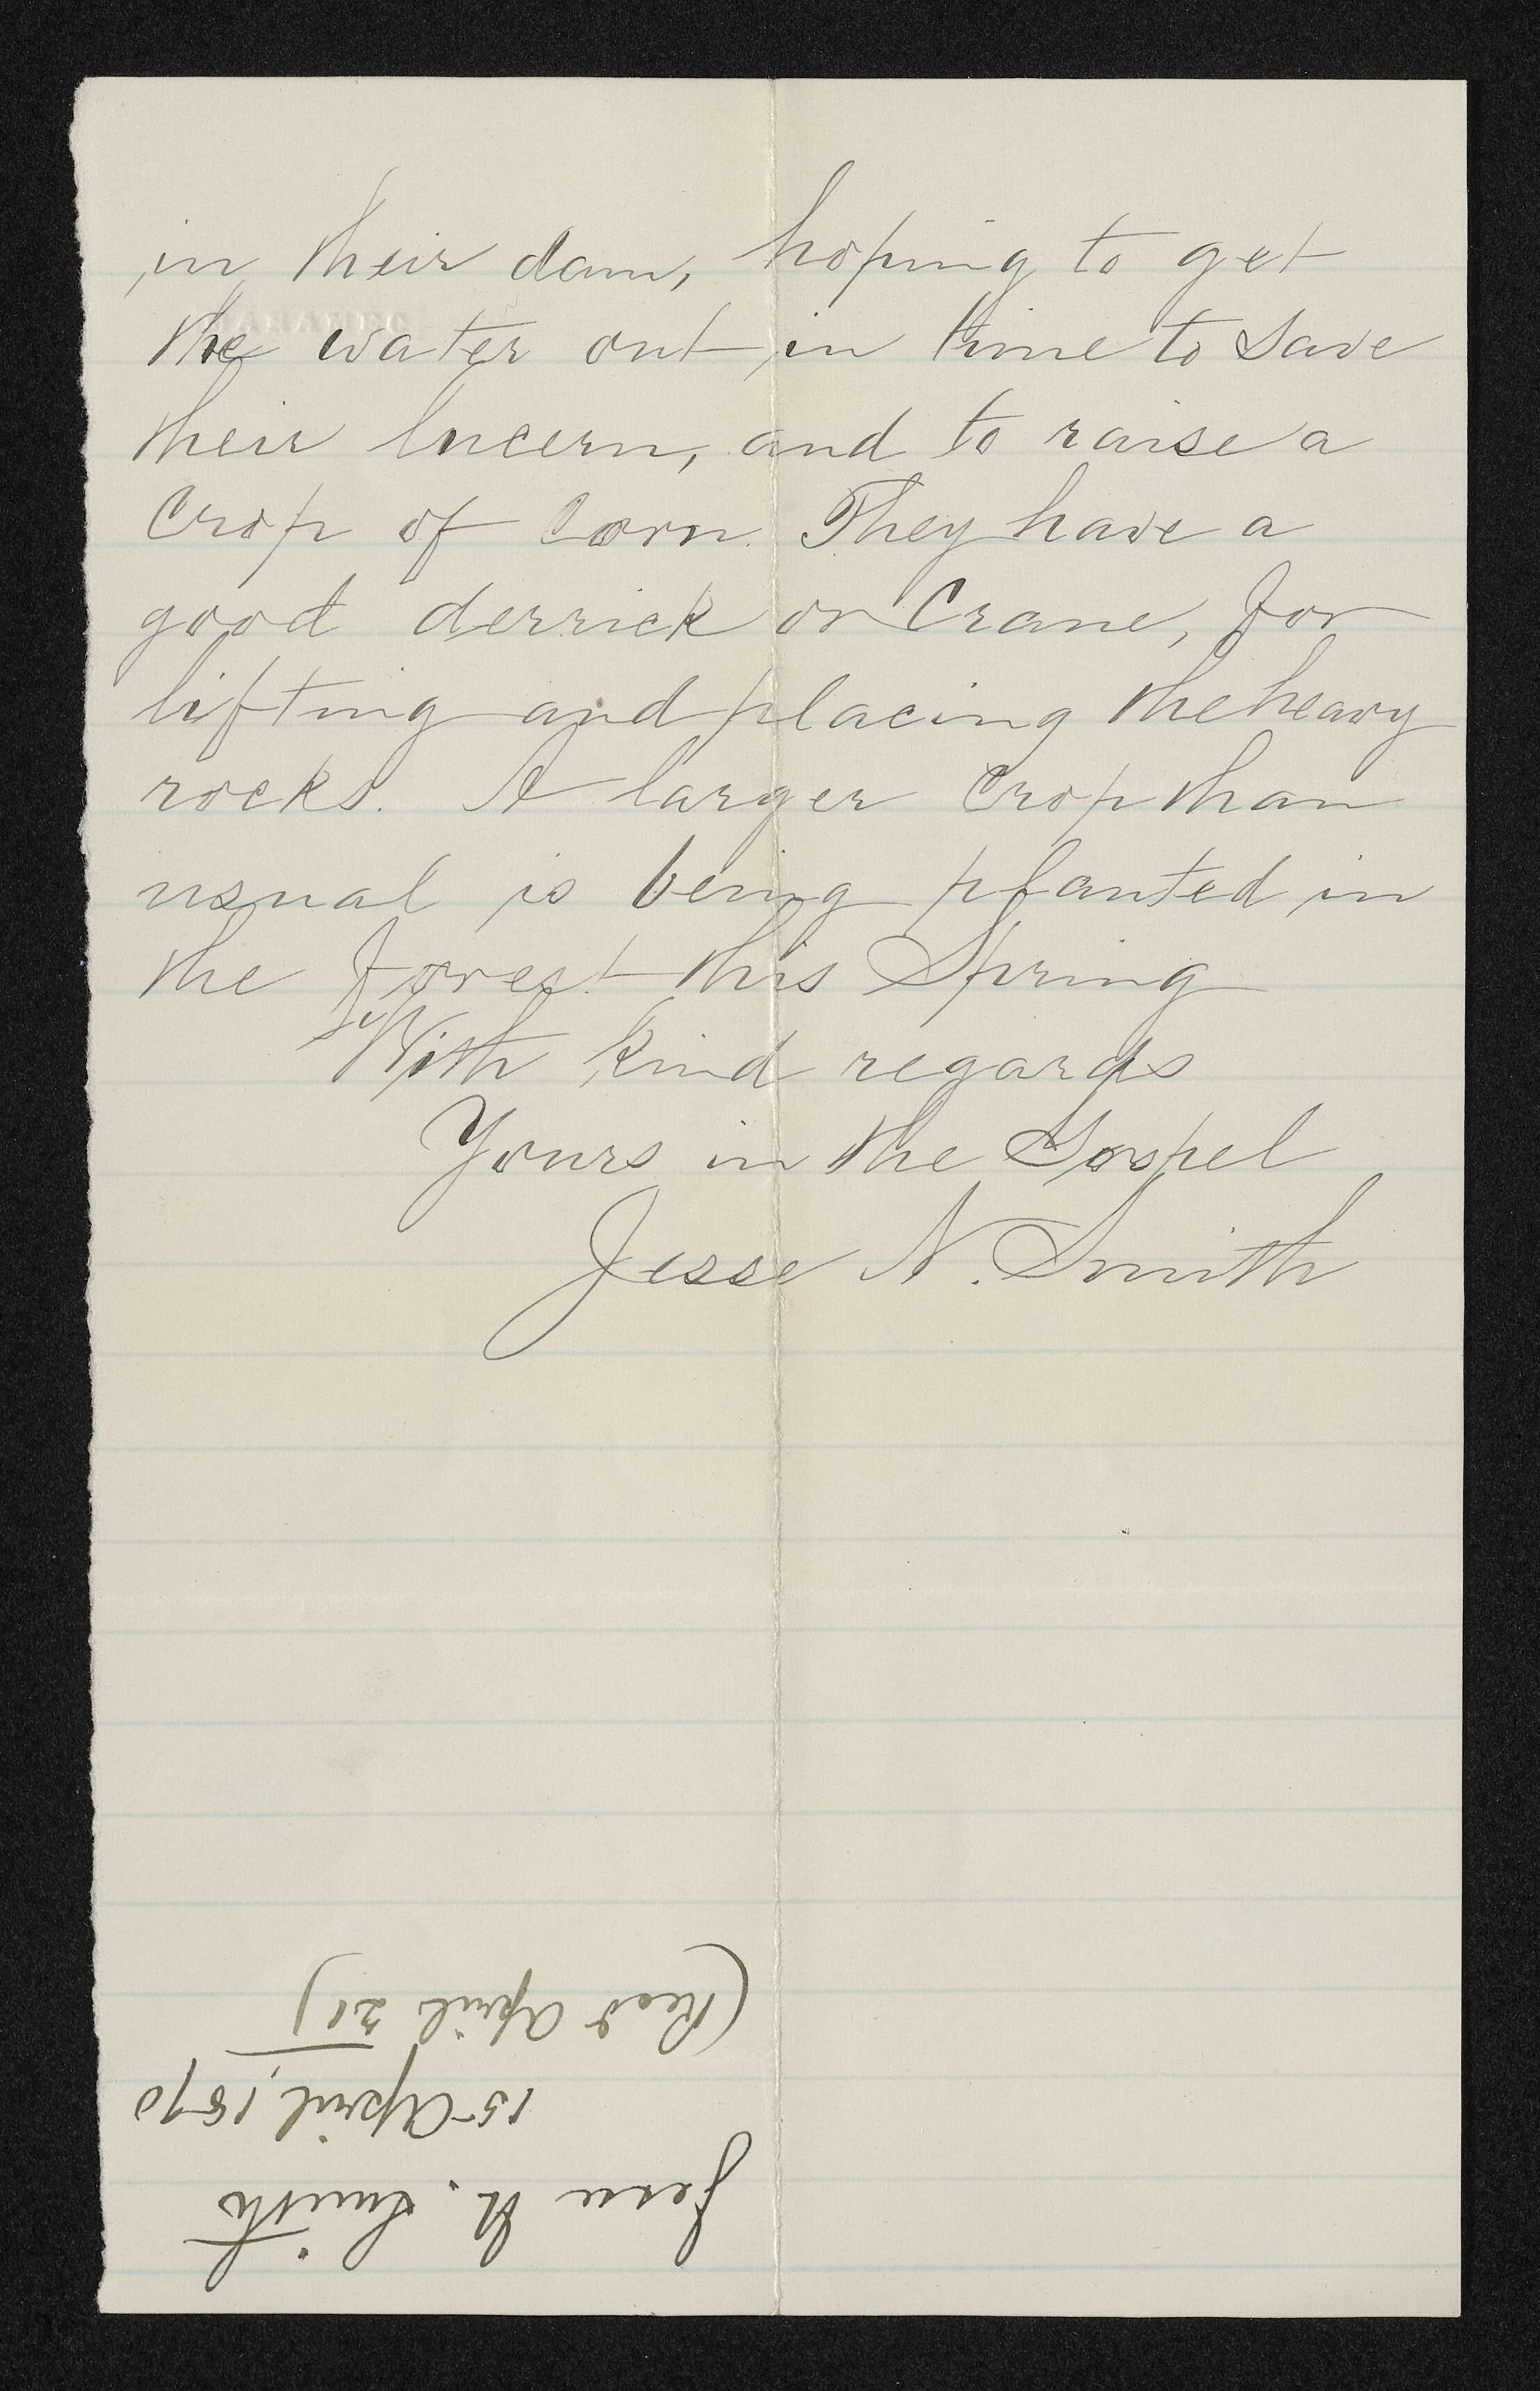 in their dam, hoping to get
the water out in time to save
their lucern, and to raise a
Crop of Corn. They have a
good derrick or Crane, for
lifting and placing the heavy
rocks. A larger Crop than
usual is being planted in
the forest this Spring
With kind regards
Yours in the Gospel
Jesse N. Smith
Jesse N. Smith
15 April, 1890
(Recd April 21)